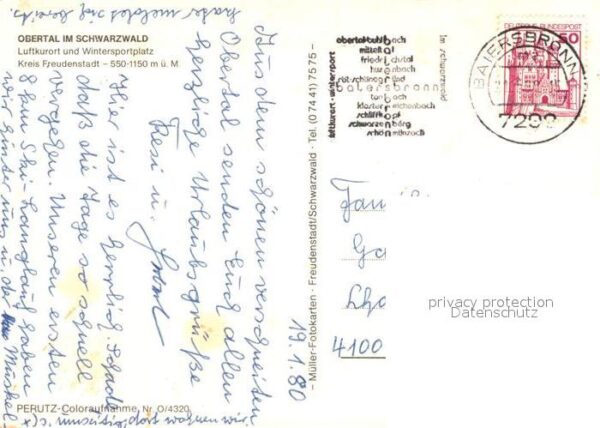 OBERTAL IM SCHWARZWALD
Luftkurort und Wintersportplatz
Kreis Freudenstadt – 550-1150 m ü. M.
Aus dem schönen verschneiten
Obertal senden Euch allen
herzliche Urlaubsgrüße
Resi u.
Hier ist es herrlich. Schade
daß die Tage so schnell
vergehen. Unseren ersten
8 km Ski-Langlauf haben
wir hinter uns u. der Muskel
kater meldet sich bereits.
19.1.80
PERUTZ-Coloraufnahme, Nr. O/4320
– Müller-Fotokarten · Freudenstadt/Schwarzwald · Tel. (0 74 41) 7575 –
luftkurort · wintersport
obertal-buhlbach
mitteltal
friedrichstal
huzenbach
röt-schönegründ
baiersbronn
tonbach
kloster reichenbach
schliffkopf
schwarzenberg
schönmünzach
im schwarzwald
BAIERSBRONN
7292
DEUTSCHE BUNDESPOST
50
Fam
Ga
4100
privacy protection
Datenschutz